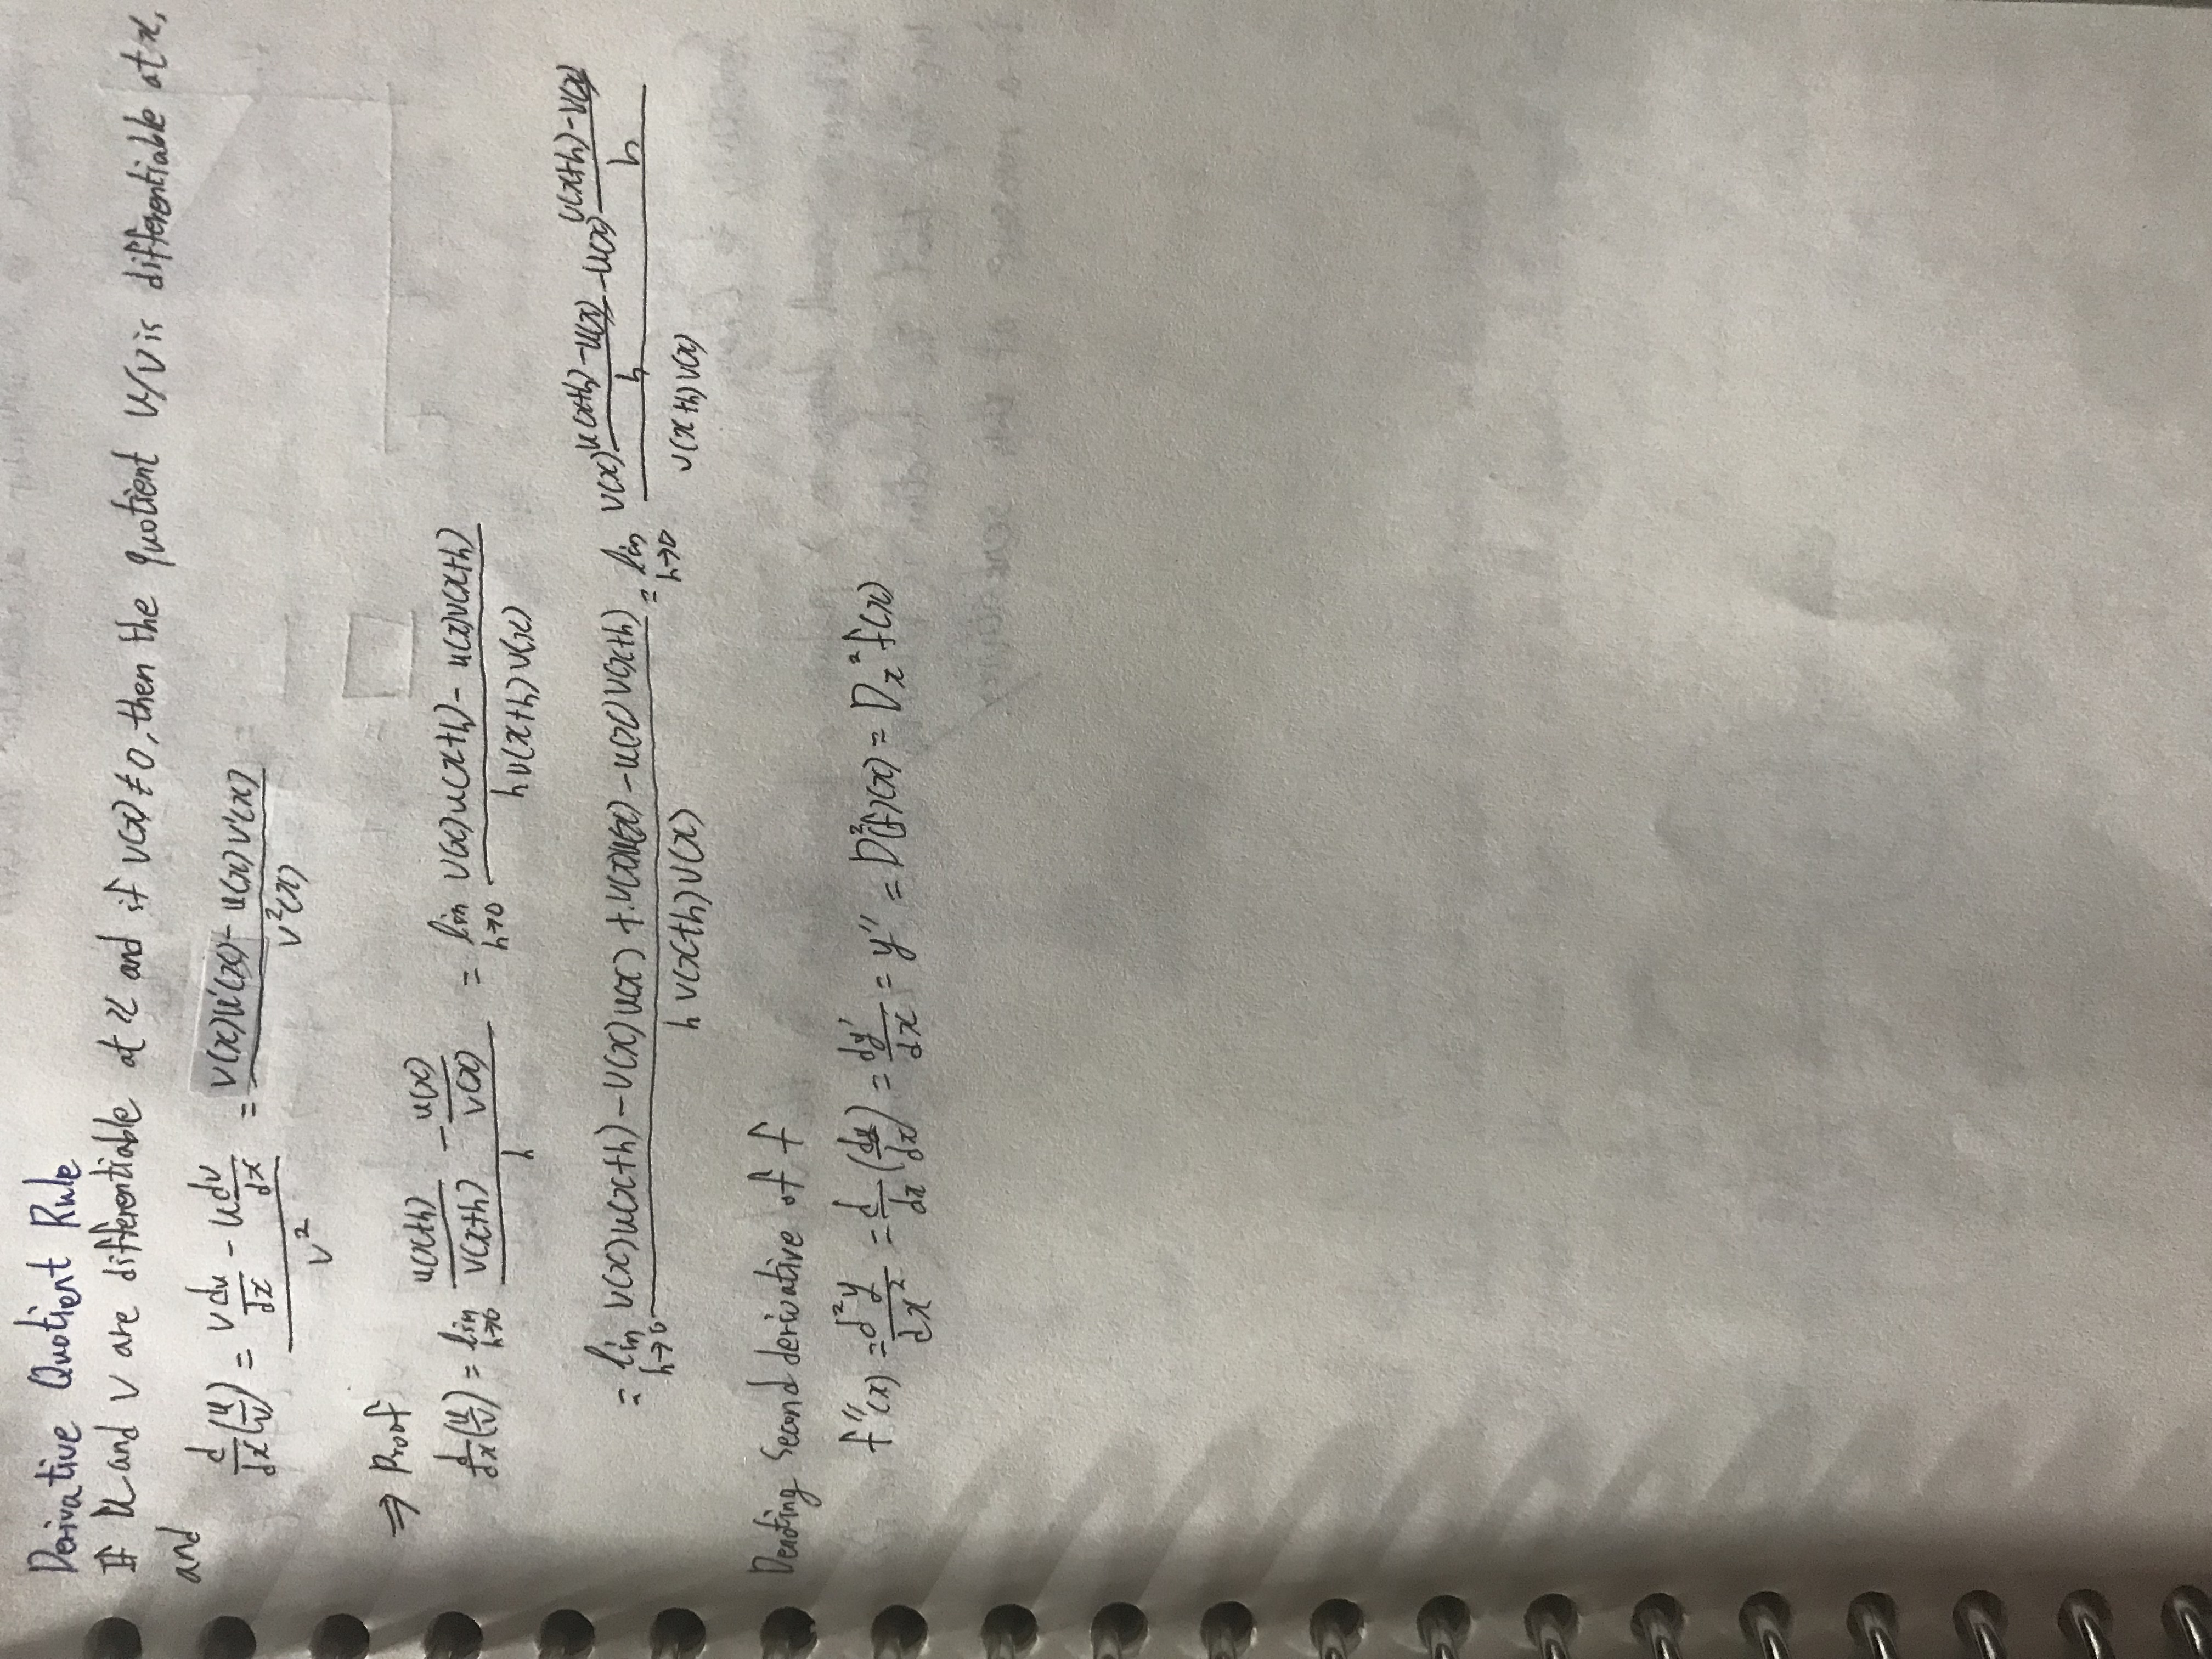 Derivative Quotient Rule
If u and v are differentiable at x and if v(x) ≠ 0, then the quotient u/v is differentiable at x,
and
d/dx (u/v) = (v du/dx - u dv/dx) / v² = (v(x)u'(x) - u(x)v'(x)) / v²(x)
⇒ Proof
d/dx (u/v) = lim h→0 (u(x+h)/v(x+h) - u(x)/v(x)) / h = lim h→0 (v(x)u(x+h) - u(x)v(x+h)) / (h v(x+h)v(x))
= lim h→0 (v(x)u(x+h) - v(x)u(x) + u(x)v(x) - u(x)v(x+h)) / (h v(x+h)v(x)) = lim h→0 (v(x) (u(x+h) - u(x))/h - u(x) (v(x+h) - v(x))/h) / (v(x+h)v(x))
Denoting Second derivative of f
f''(x) = d²y/dx² = d/dx (dy/dx) = dy'/dx = y'' = D²(f)(x) = Dx² f(x)